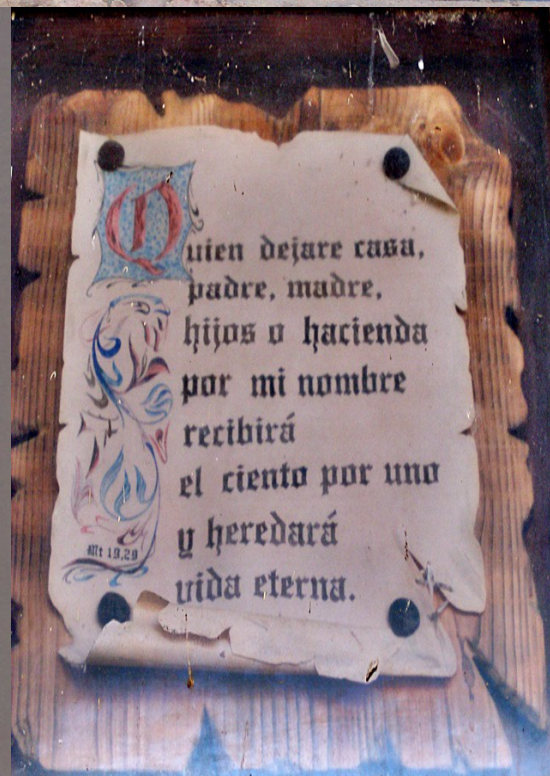 Quien dejare casa,
padre, madre,
hijos o hacienda
por mi nombre
recibirá
el ciento por uno
y heredará
vida eterna.
Mt 19,29